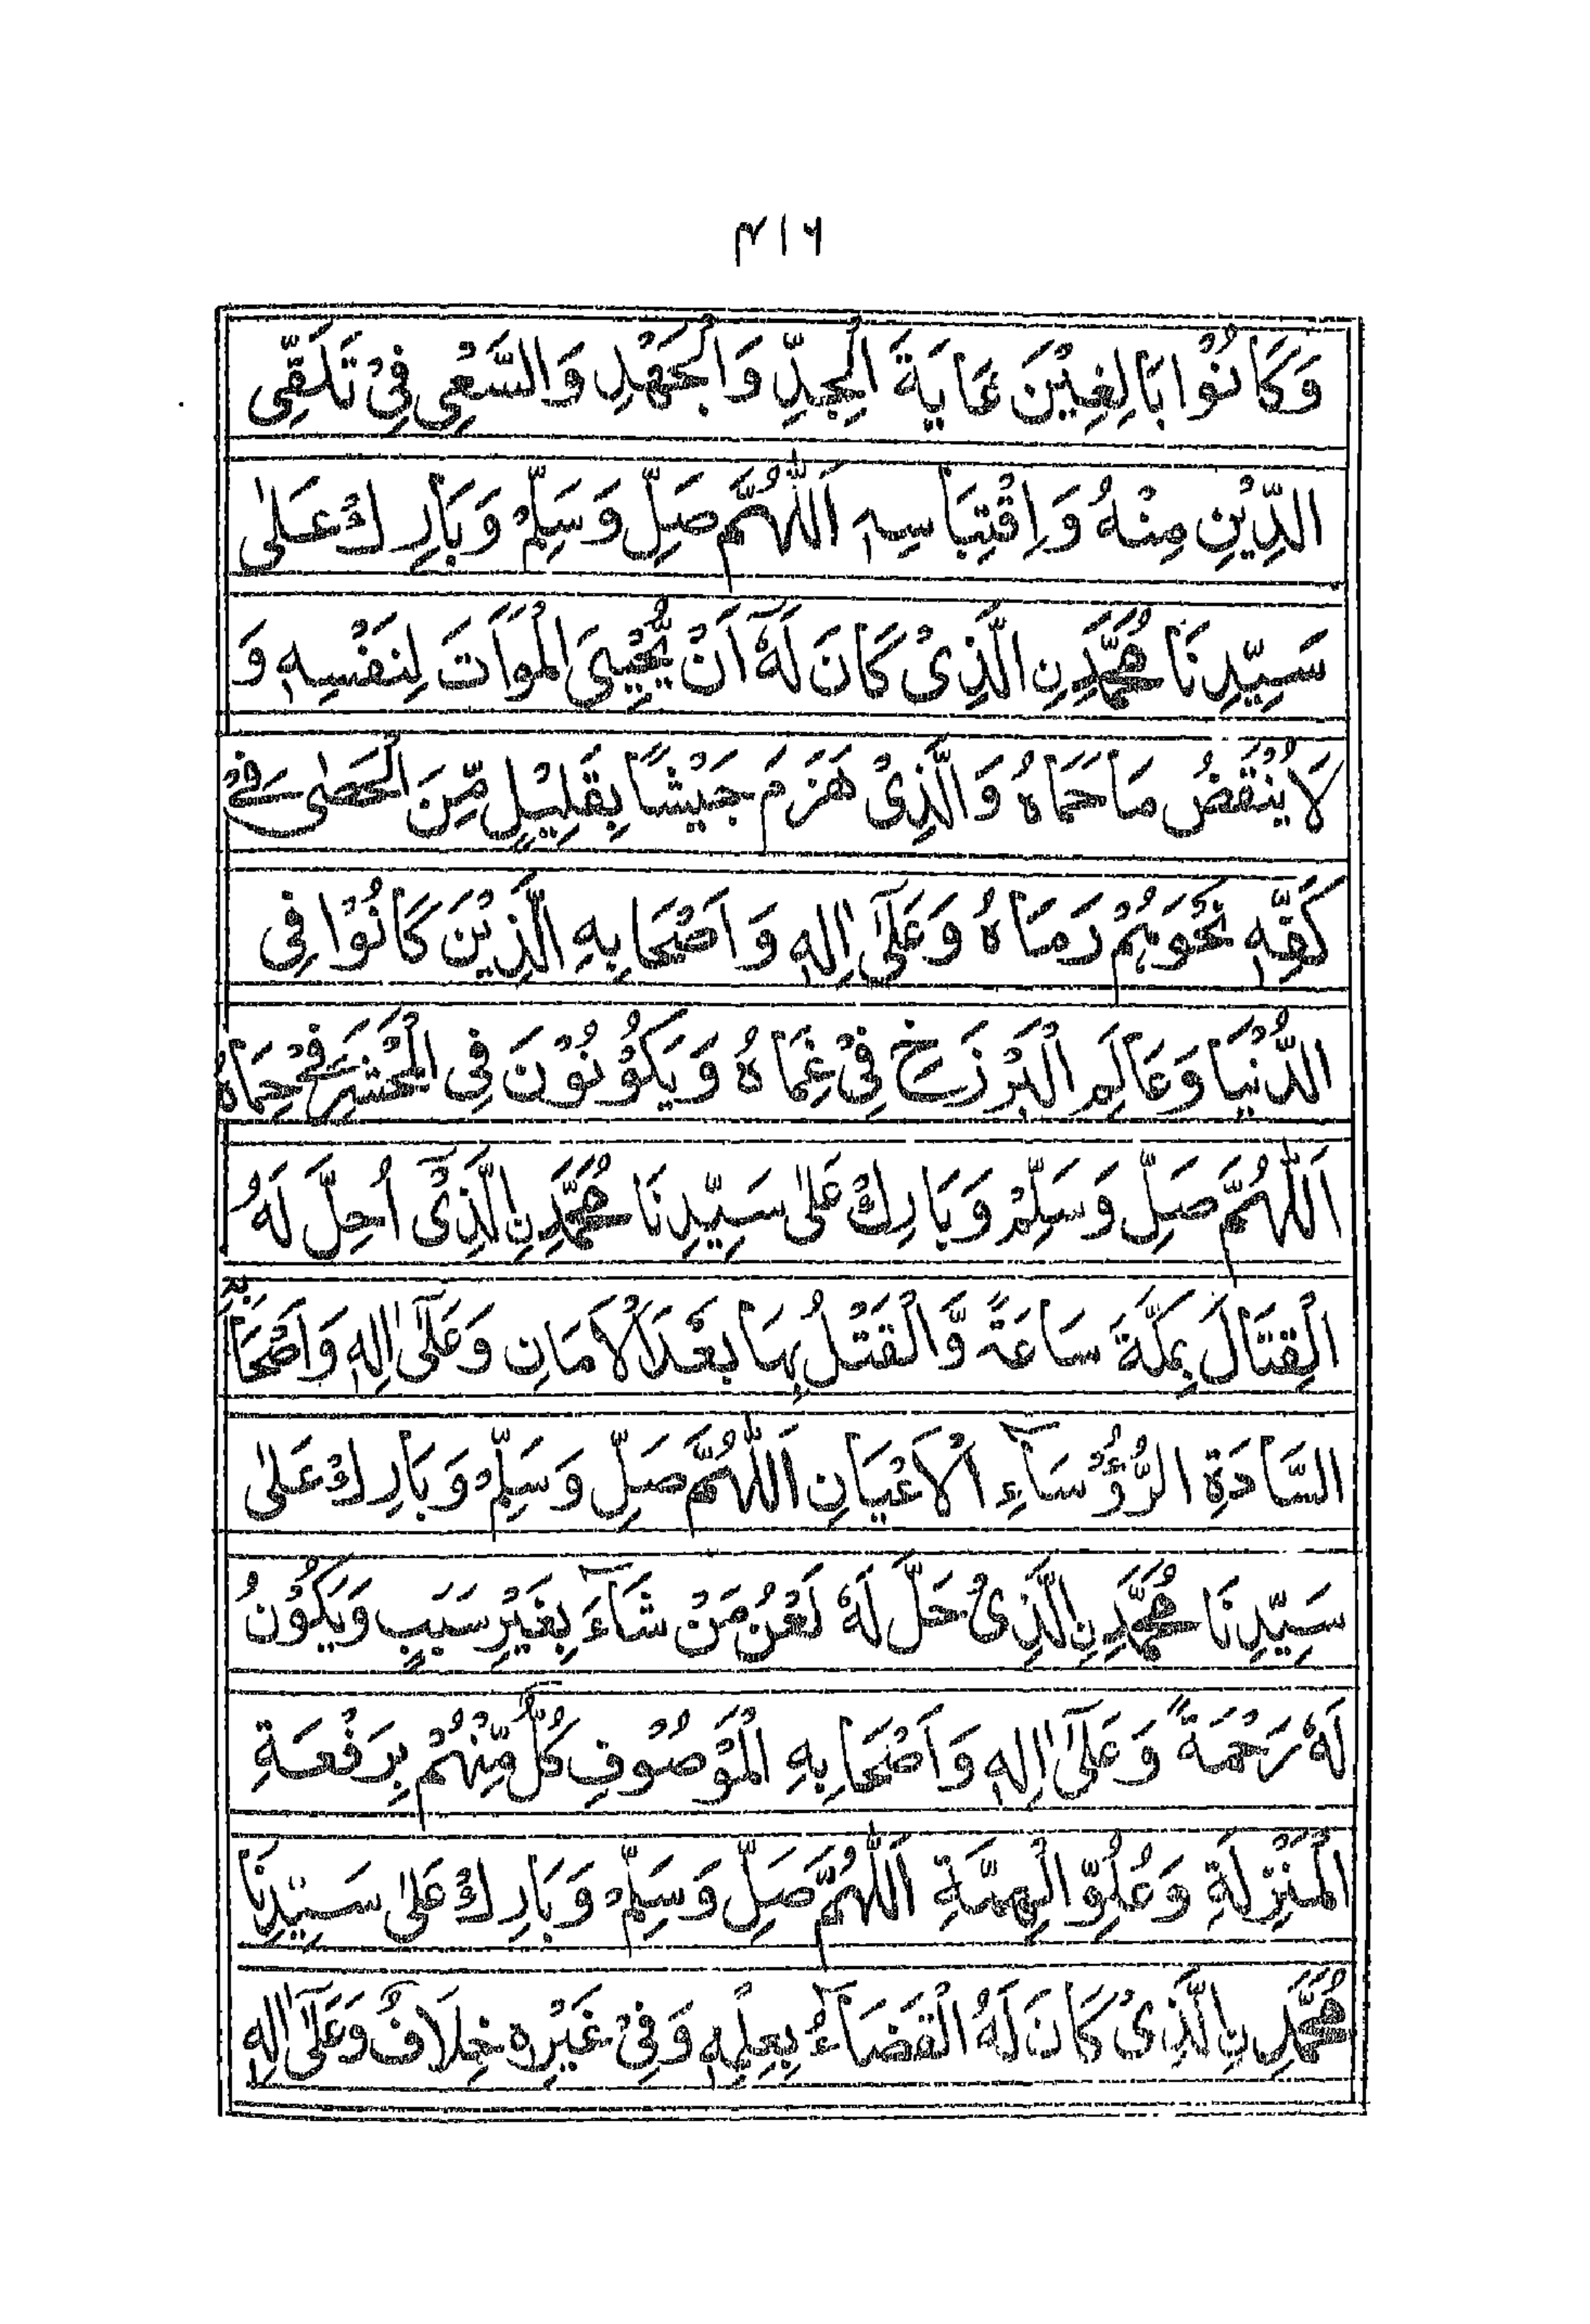 ۴۱۶
وَكَانُوْا بَالِغِيْنَ غَايَةَ الْجِدِّ وَالْجَهْدِ وَالسَّعْىِ فِىْ تَلَقِّى
الدِّيْنِ مِنْهُ وَاِقْتِبَاسِهٖ اَللّٰهُمَّ صَلِّ وَسَلِّمْ وَبَارِكْ عَلٰى
سَيِّدِنَا مُحَمَّدِنِ الَّذِىْ كَانَ لَهٗٓ اَنْ يُّحْيِىَ الْمَوَاتَ لِنَفْسِهٖ وَ
لَا يُنْقَضُ مَا حَمَاهُ وَالَّذِىْ هَزَمَ جَيْشًا بِقَلِيْلٍ مِّنَ الْحَصٰى فِىْ
كَفِّهٖ نَحْوَهُمْ رَمَاهُ وَعَلٰٓى اٰلِهٖ وَاَصْحَابِهِ الَّذِيْنَ كَانُوْا فِى
الدُّنْيَا وَعَالَمِ الْبَرْزَخِ فِىْ غِمَاهُ وَيَكُوْنُوْنَ فِى الْمَحْشَرِ فِىْ حِمَاهُ
اَللّٰهُمَّ صَلِّ وَسَلِّمْ وَبَارِكْ عَلٰى سَيِّدِنَا مُحَمَّدِنِ الَّذِىْٓ اُحِلَّ لَهُ
الْقِتَالَ بِمَكَّةَ سَاعَةً وَّالْقَتْلُ بِهَا بَعْدَ الْاَمَانِ وَعَلٰٓى اٰلِهٖ وَاَصْحَابِهِ
السَّادَةِ الرُّؤُسَآءِ الْاَعْيَانِ اَللّٰهُمَّ صَلِّ وَسَلِّمْ وَبَارِكْ عَلٰى
سَيِّدِنَا مُحَمَّدِنِ الَّذِىْ حَلَّ لَهٗ لَعْنُ مَنْ شَآءَ بِغَيْرِ سَبَبٍ وَيَكُوْنُ
لَهٗ رَحْمَةً وَعَلٰٓى اٰلِهٖ وَاَصْحَابِهِ الْمَوْصُوْفِ كُلٌّ مِّنْهُمْ بِرَفْعَةِ
الْمَنْزِلَةِ وَعُلُوِّ الْهِمَّةِ اَللّٰهُمَّ صَلِّ وَسَلِّمْ وَبَارِكْ عَلٰى سَيِّدِنَا
مُحَمَّدِنِ الَّذِىْ كَانَ لَهُ الْقَضَآءُ بِعِلْمِهٖ وَفِىْ غَيْرِهٖ خِلَافٌ وَعَلٰٓى اٰلِهٖ